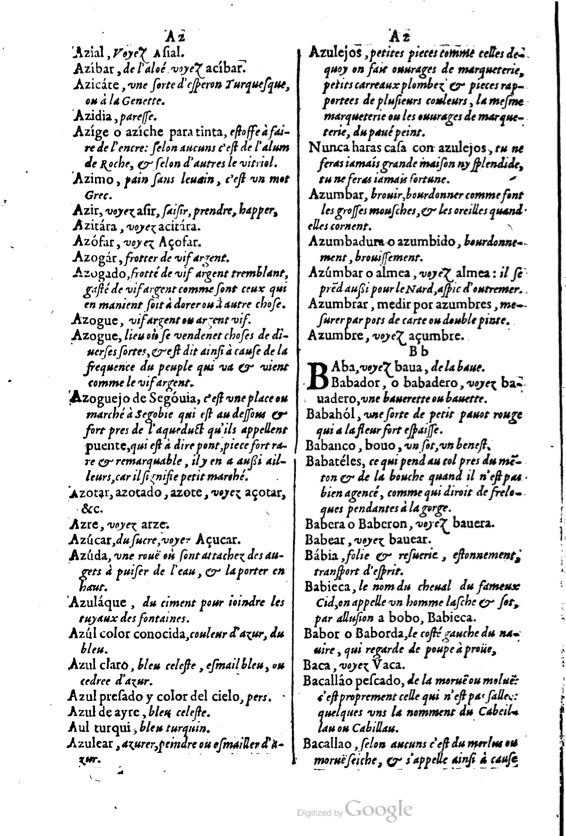 Az
Azial, Voyez Asial.
Azíbar, de l'aloé voyez acíbar.
Azicáte, vne sorte d'esperon Turquesque,
ou à la Genette.
Azidia, paresse.
Azíge o azíche para tinta, estoffe à fai-
re de l'encre: selon aucuns c'est de l'alum
de Roche, & selon d'autres le vitriol.
Azimo, pain sans leuain, c'est vn mot
Grec.
Azir, voyez asir, saisir, prendre, happer,
Azitára, voyez acitára.
Azófar, voyez Açofar.
Azogár, frotter de vif argent.
Azogado, frotté de vif argent tremblant,
gasté de vif argent comme sont ceux qui
en manient soit à dorer ou à autre chose.
Azogue, vif argent ou argent vif.
Azogue, lieu où se vendenet choses de di-
uerses sortes, & est dit ainsi à cause de la
frequence du peuple qui va & vient
comme le vif argent.
Azoguejo de Segóuia, c'est vne place ou
marché à Segobie qui est au dessous &
fort pres de l'aqueduct qu'ils appellent
puente, qui est à dire pont, piece fort ra-
re & remarquable, il y en a aussi ail-
leurs, car il signifie petit marché.
Azotar, azotado, azote, voyez açotar,
&c.
Azre, voyez arze.
Azúcar, du sucre, voyez Açucar.
Azúda, vne rouë où sont attachez des au-
gets à puiser de l'eau, & la porter en
haut.
Azuláque, du ciment pour ioindre les
tuyaux des fontaines.
Azúl color conocida, couleur d'azur, du
bleu.
Azul claro, bleu celeste, esmail bleu, ou
cedree d'azur.
Azul presado y color del cielo, pers.
Azul de ayre, bleu celeste.
Aul turqui, bleu turquin.
Azulear, azurer, peindre ou esmailler d'a-
zur.
Az
Azulejos, petites pieces comme celles de-
quoy on fait ouurages de marqueterie,
petits carreaux plombez & pieces rap-
portees de plusieurs couleurs, la mesme
marqueterie ou les ouurages de marque-
terie, du paué peint.
Nunca haras casa con azulejos, tu ne
feras iamais grande maison ny splendide,
tu ne feras iamais fortune.
Azumbar, brouir, bourdonner comme font
les grosses mousches, & les oreilles quand
elles cornent.
Azumbadura o azumbido, bourdonne-
ment, brouissement.
Azúmbar o almea, voyez almea: il se
prẽd aussi pour le Nard, aspic d'outremer.
Azumbrar, medir por azumbres, me-
surer par pots de carte ou double pinte.
Azumbre, voyez açumbre.
B b
BAba, voyez baua, de la baue.
Babador, o babadero, voyez ba-
uadero, vne bauerette ou bauette.
Babahól, vne sorte de petit pauot rouge
qui a la fleur fort espaisse.
Babanco, bouo, vn sot, vn benest.
Babatéles, ce qui pend au col pres du mẽ-
ton & de la bouche quand il n'est pas
bien agencé, comme qui diroit de frelo-
ques pendantes à la gorge.
Babera o Baberon, voyez bauera.
Babear, voyez bauear.
Bábia, folie & resuerie, estonnement,
transport d'esprit.
Babieca, le nom du cheual du fameux
Cid, on appelle vn homme lasche & sot,
par allusion a bobo, Babieca.
Babor o Baborda, le costé gauche du na-
uire, qui regarde de poupe à prouë,
Baca, voyez Vaca.
Bacalláo pescado, de la moruë ou moluë
c'est proprement celle qui n'est pas sallee:
quelques vns la nomment du Cabeil-
lau ou Cabillau.
Bacallao, selon aucuns c'est du merlus ou
moruëseiche, & s'appelle ainsi à cause
Digitized by Google